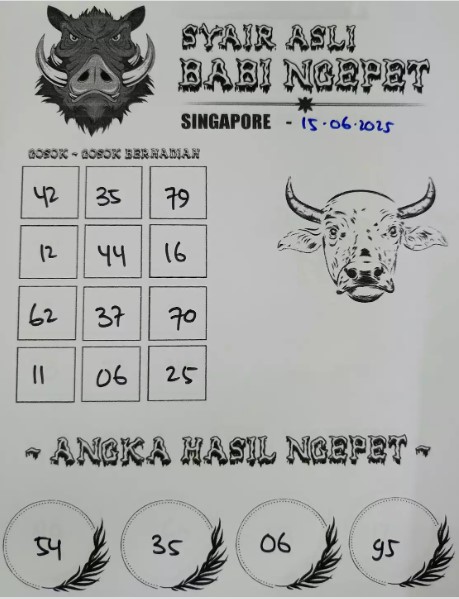 SYAIR ASLI
BABI NGEPET
SINGAPORE - 15-06-2025
GOSOK - GOSOK BERHADIAH
42 35 79
12 44 16
62 37 70
11 06 25
~ ANGKA HASIL NGEPET ~
54 35 06 95